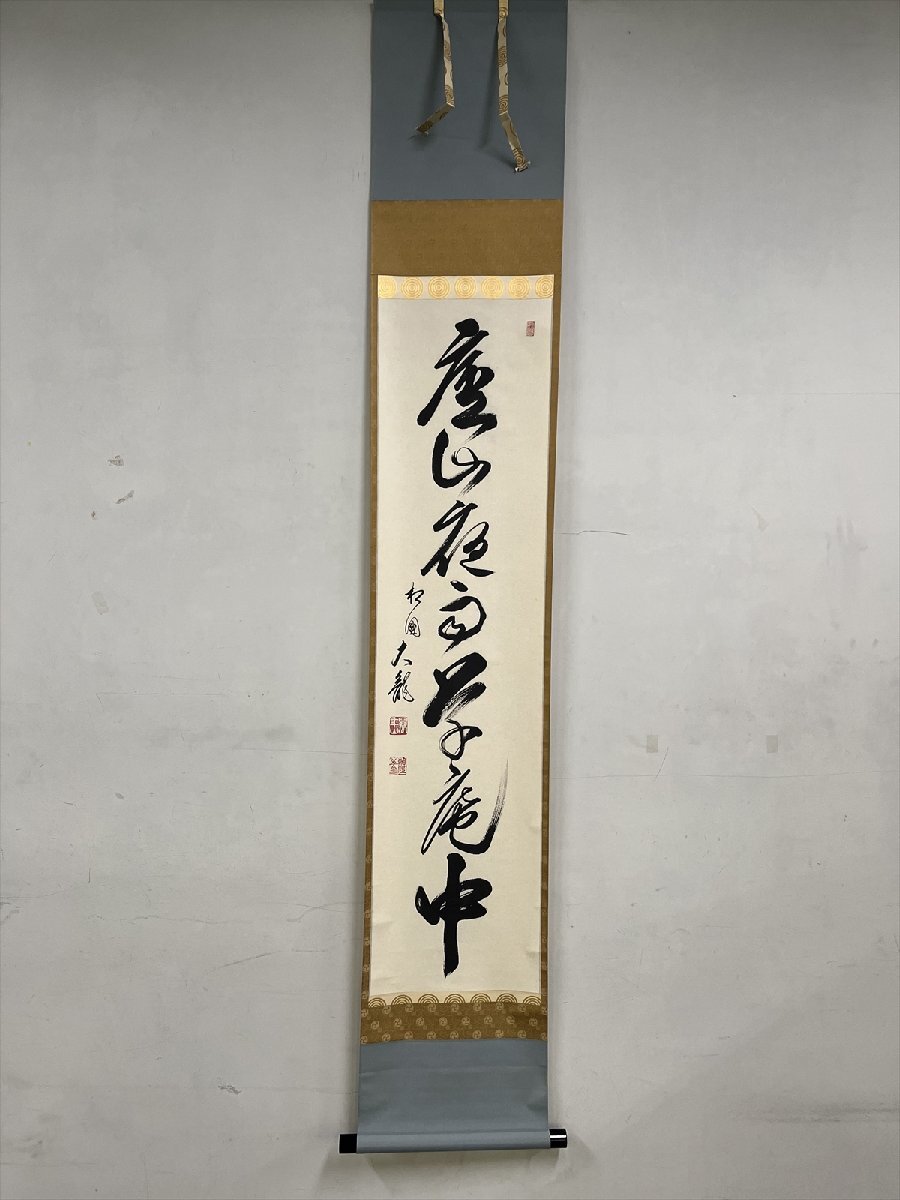 廬山夜雨草庵中
相國大龍